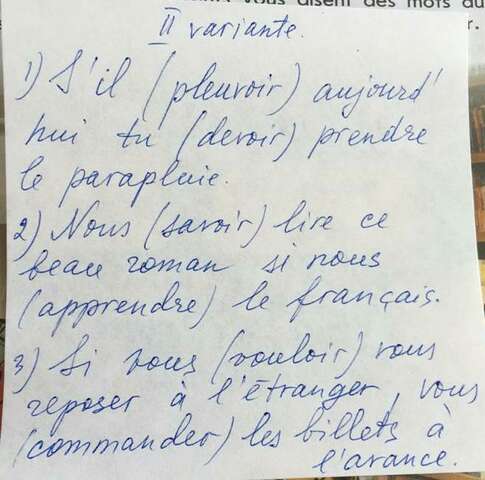 vous disent des mots du
r.
II variante.
1) S'il (pleuvoir) aujourd'
hui tu (devoir) prendre
le parapluie.
2) Nous (savoir) lire ce
beau roman si nous
(apprendre) le français.
3) Si vous (vouloir) vous
reposer à l'étranger, vous
(commander) les billets à
l'avance.